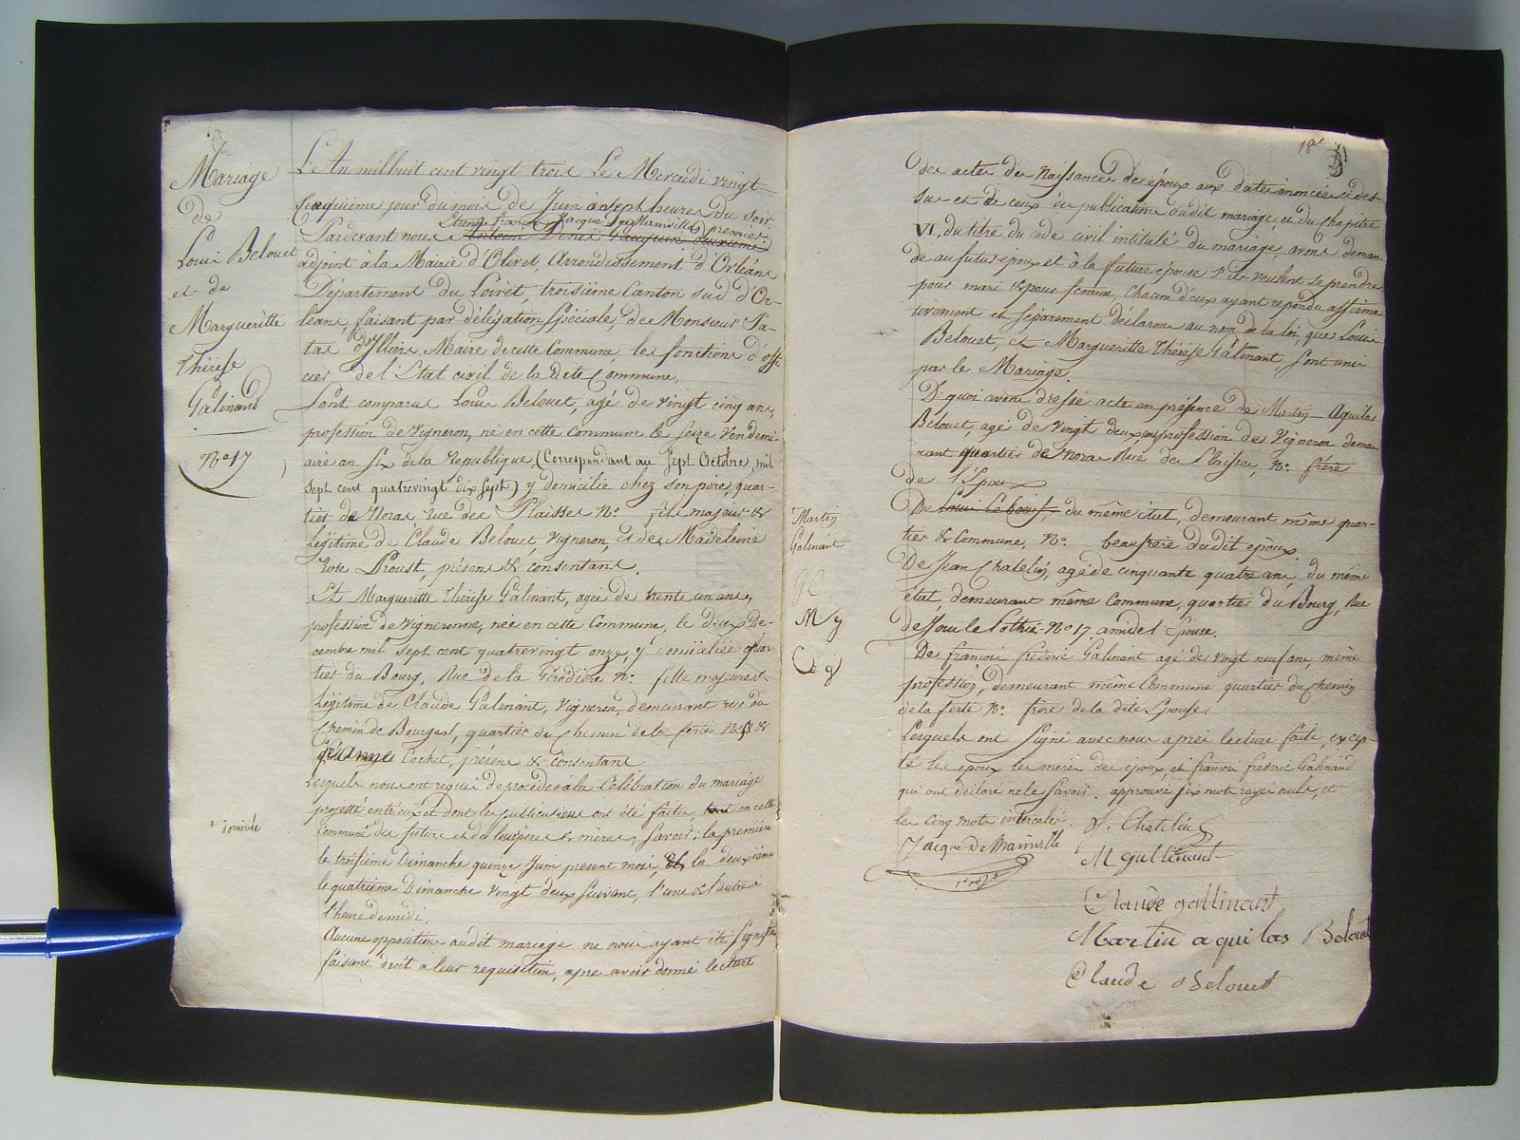 Mariage
de
Louis Belouet
et de
Margueritte
Thérèse
Galinand
No 17
L'An mil huit cent vingt trois Le Mercredi vingt
cinquième jour du mois de Juin à sept heures du soir
Jacques premier
Pardevant nous Antoine Denis deuxieme
adjoint à la Mairie d'Olivet, Arrondissement d'Orléans
Département du Loiret, troisième Canton sud d'Or-
léans, faisant par délégation spéciale, de Monsieur
d'Illiers Maire de cette Commune les fonctions d'offi-
cier de l'Etat civil de la dite Commune.
Sont comparus Louis Belouet, agé de vingt cinq ans,
profession de Vigneron, né en cette Commune le seize Vendemi-
aire an six de la République, (Correspondant au Sept Octobre, mil
sept cent quatrevingt dix sept) y domicilié chez son père, quar-
tier de Noras rue des Plaisses No fils majeur &
légitime de Claude Belouet, Vigneron, et de Madeleine
Proust, présens & consentans.
Et Margueritte Thérèse Galinant, agée de trente un ans,
profession de Vigneronne, née en cette Commune, le deux De-
cembre mil sept cent quatrevingt onze, y domiciliée quar-
tier du Bourg, Rue de la No fille majeure &
légitime de Claude Galinant, Vigneron, demeurant rue du
Chemin de Bourges, quartier du Chemin de la ferté No &
Cochet, présens & consentans
Lesquels nous ont requis de proceder à la Célébration du mariage
projetté entr'eux et dont les publications ont été faites, en cette
Commune des futurs et de leurs pères & mères, savoir: la première
le troisième Dimanche quinze Juin présent mois, la deuxième
le quatrième Dimanche vingt deux suivant, l'une & l'autre à
l'heure de midi.
Aucune opposition audit mariage ne nous ayant été signifiée
faisant droit a leur requisition, apres avoir donné lecture
des actes de Naissances des époux aux dates énoncées ci des-
sus et de ceux de publication dudit mariage, et du chapitre
VI. du titre du code civil intitulé du mariage, avons deman-
dé au futur époux et à la future épouse s'ils veulent se prendre
pour mari & pour femme, chacun d'eux ayant repondu affirma-
tivement et séparément déclarons au nom de la loi, que Louis
Belouet, et Margueritte Thérèse Galinant, sont unis
par le Mariage.
De quoi avons dressé acte en présence de Martin Aquilas
Belouet, agé de vingt deux ans profession de Vigneron demeu-
rant quartier de Noras Rue des Plaisses, No frère
de l'Epoux
Martin
Galinant
De Louis Leboeuf, du même état, demeurant même quar-
tier & Commune, No beaufrère dudit époux.
De Jean Chatelin, agé de cinquante quatre ans, du même
état, demeurant même Commune, quartier du Bourg, Rue
No 17, ami de l'Epouse.
De françois fréderic Galinant agé de vingt neuf ans, même
profession, demeurant même Commune quartier du chemin
de la ferté No frère de la dite Epouse.
Lesquels ont signé avec nous après lecture faite, excep-
té les époux les mères des époux, et françois fréderic Galinand
qui ont déclaré ne le savoir. approuvé six mots rayés nuls, et
les cinq mots intercalés.
J. Chatelin
Jacque De Mainville
M galllinant
Claude gallinant
Martin aquilas Belouet
Claude Belouet